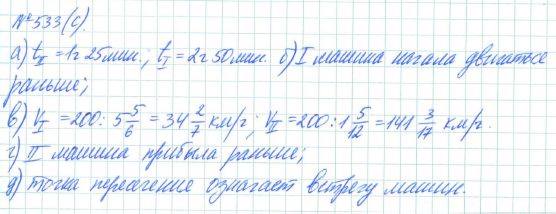 №533(с).
а) t_II = 1ч 25мин.; t_I = 2ч 50мин. б) I машина начала двигаться
раньше;
в) V_I = 200 : 5 5/6 = 34 2/7 км/ч; V_II = 200 : 1 5/12 = 141 3/17 км/ч.
г) II машина прибыла раньше;
д) точка пересечения означает встречу машин.